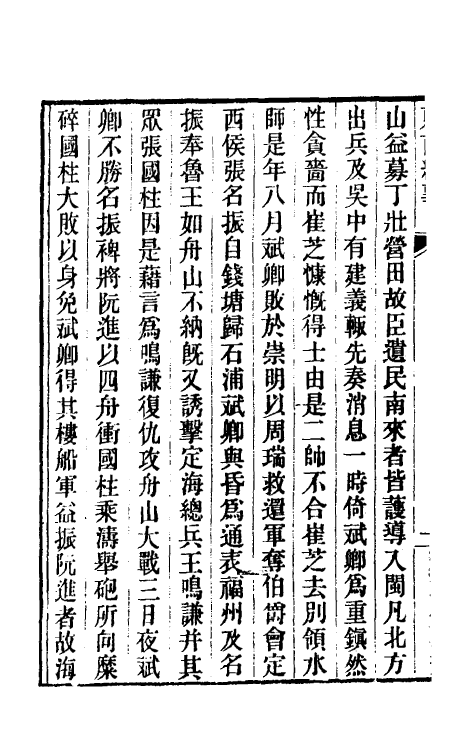 山益募丁壯營田故臣遺民南來者皆護導入閩凡北方
出兵及吳中有建義輒先奏消息一時倚斌卿爲重鎮然
性貪嗇而崔芝慷慨得士由是二帥不合崔芝去別領水
師是年八月斌卿敗於崇明以周瑞救還軍奪伯爵會定
西侯張名振自錢塘歸石浦斌卿與昏爲通表福州及名
振奉魯王如舟山不納旣又誘擊定海總兵王鳴謙并其
眾張國柱因是藉言爲鳴謙復仇攻舟山大戰三日夜斌
卿不勝名振裨將阮進以四舟衝國柱乘濤舉砲所向糜
碎國柱大敗以身免斌卿得其樓船軍益振阮進者故海